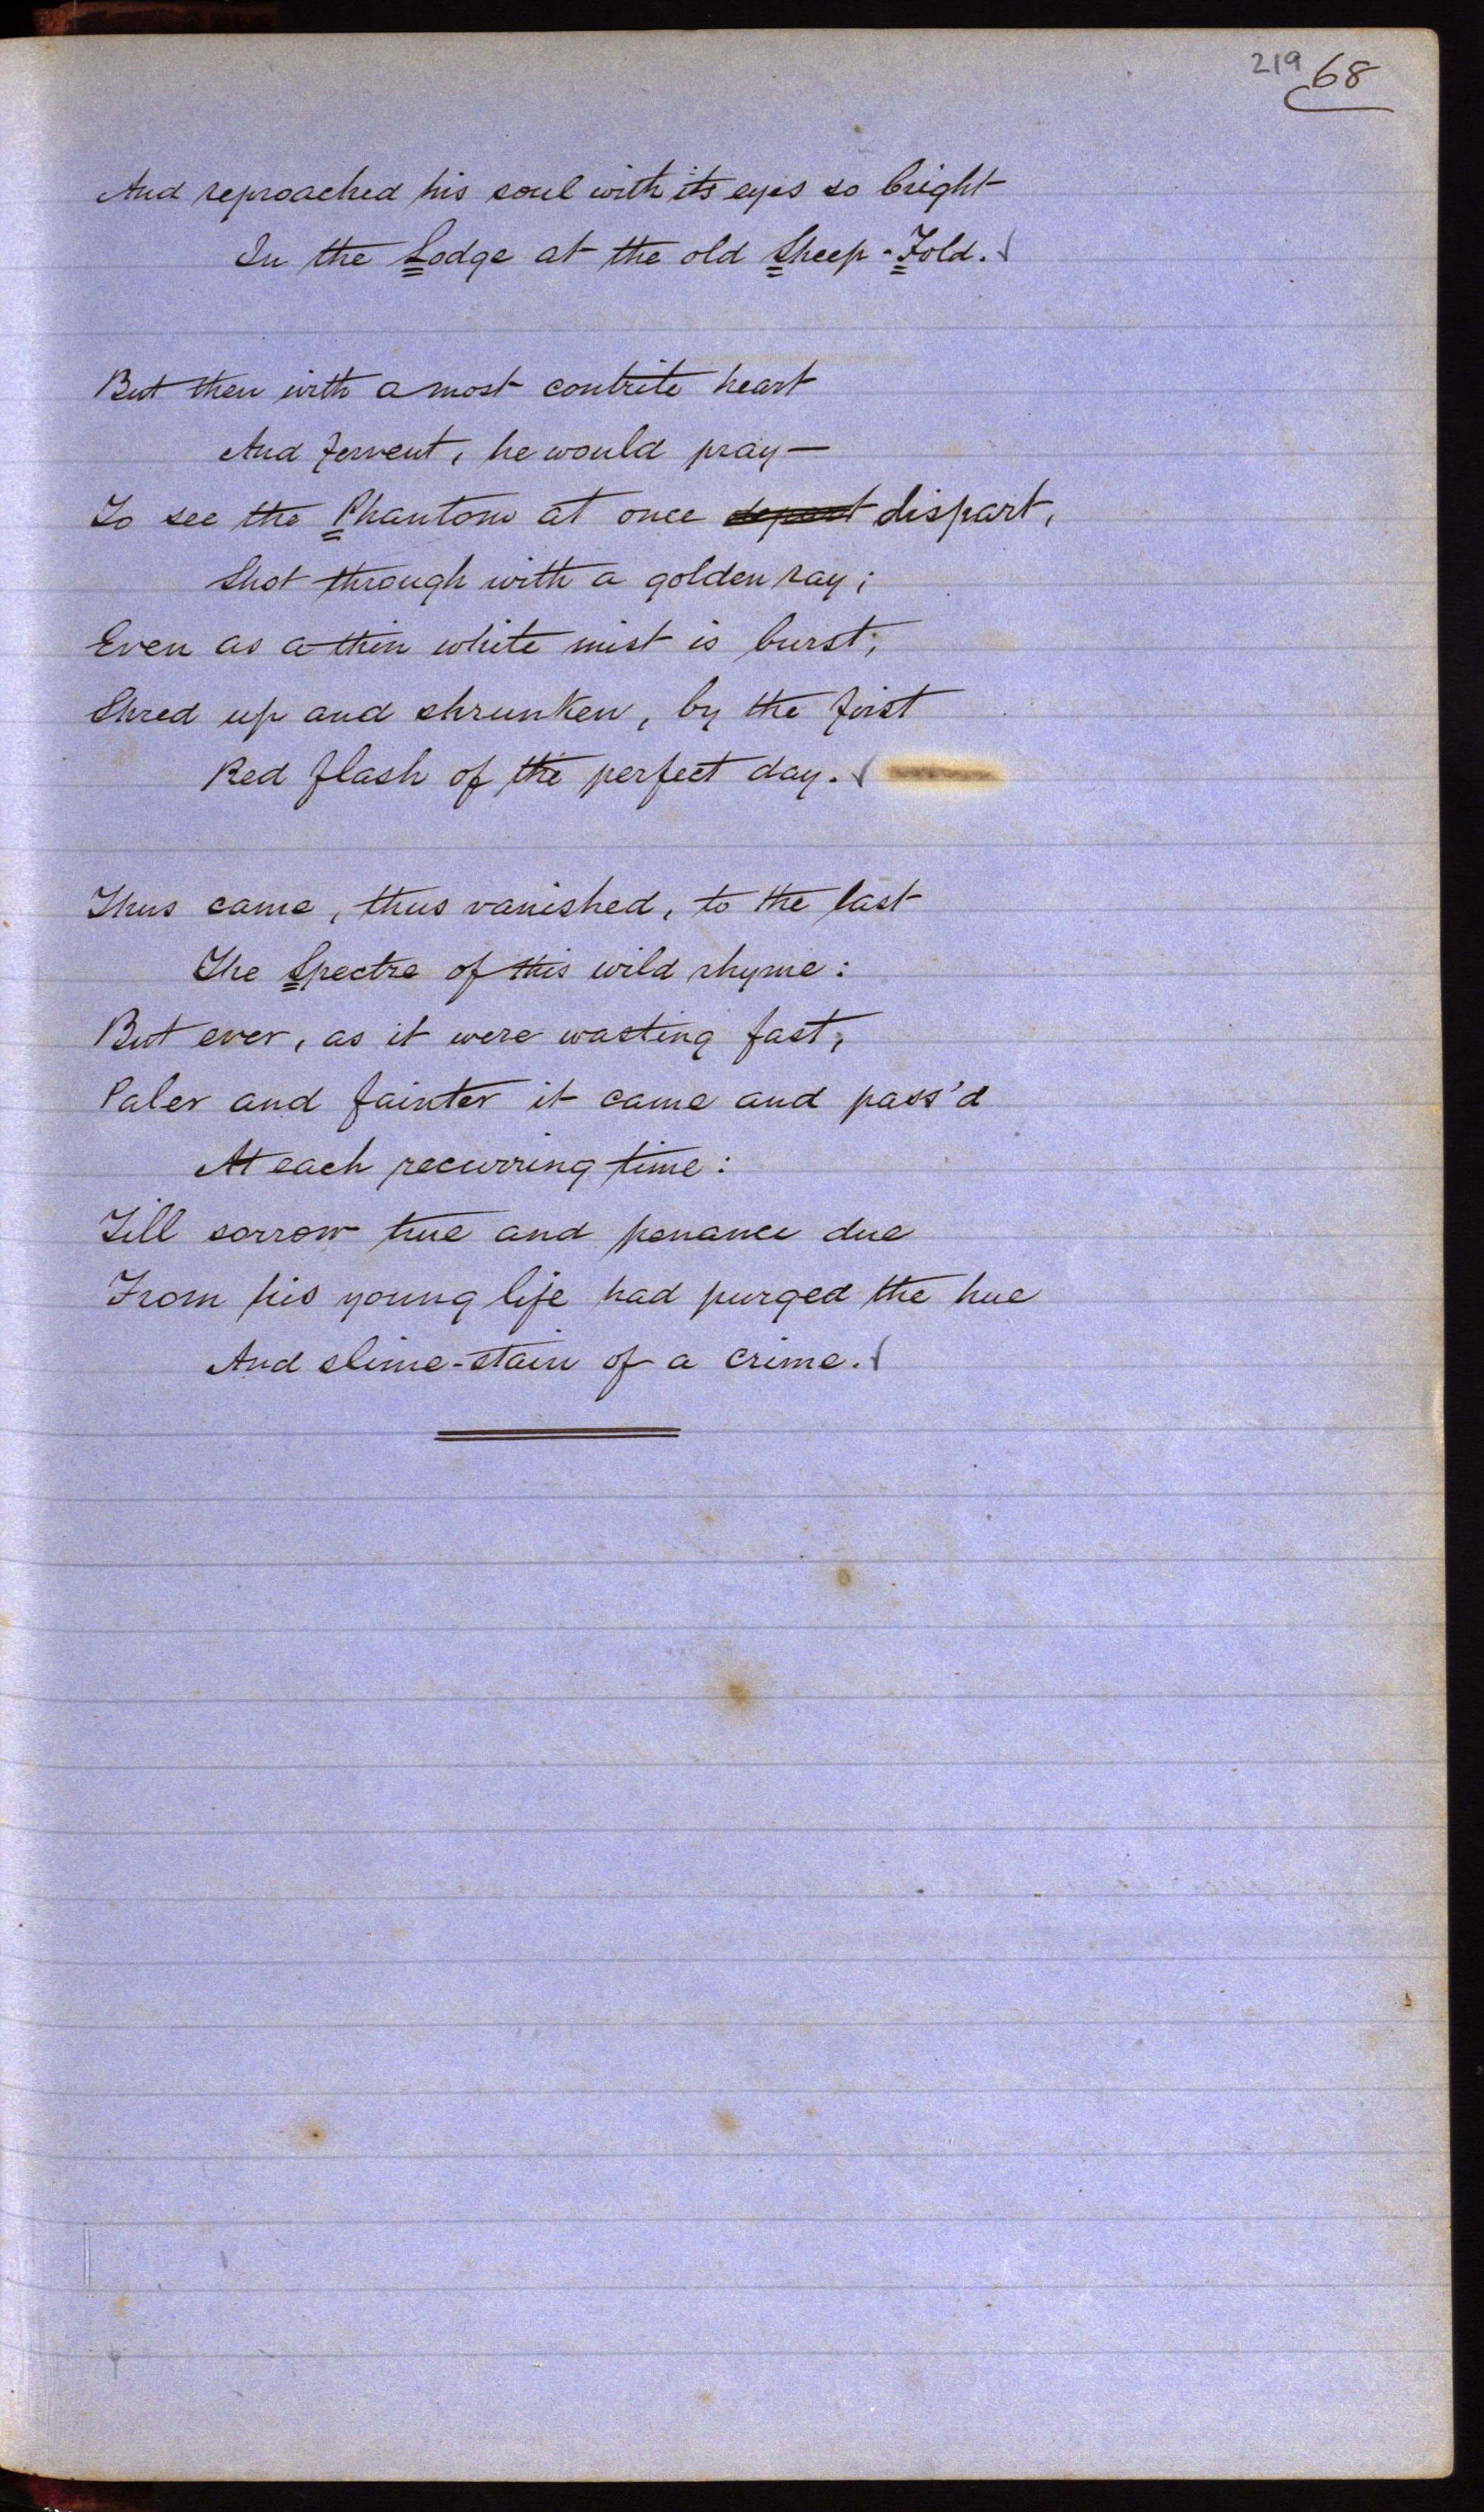 219 68
And reproached his soul with its eyes so bright
In the Lodge at the old Sheep-Fold.
But then with a most contrite heart
And fervent, he would pray—
To see the Phantom at once depart dispart,
Shot through with a golden ray;
Even as a thin white mist is burst,
Shred up and shrunken, by the first
Red flash of the perfect day.
Thus came, thus vanished, to the last
The Spectre of this wild rhyme:
But ever, as it were wasting fast,
Paler and fainter it came and pass'd
At each recurring time:
Till sorrow true and penance due
From his young life had purged the hue
And slime-stain of a crime.